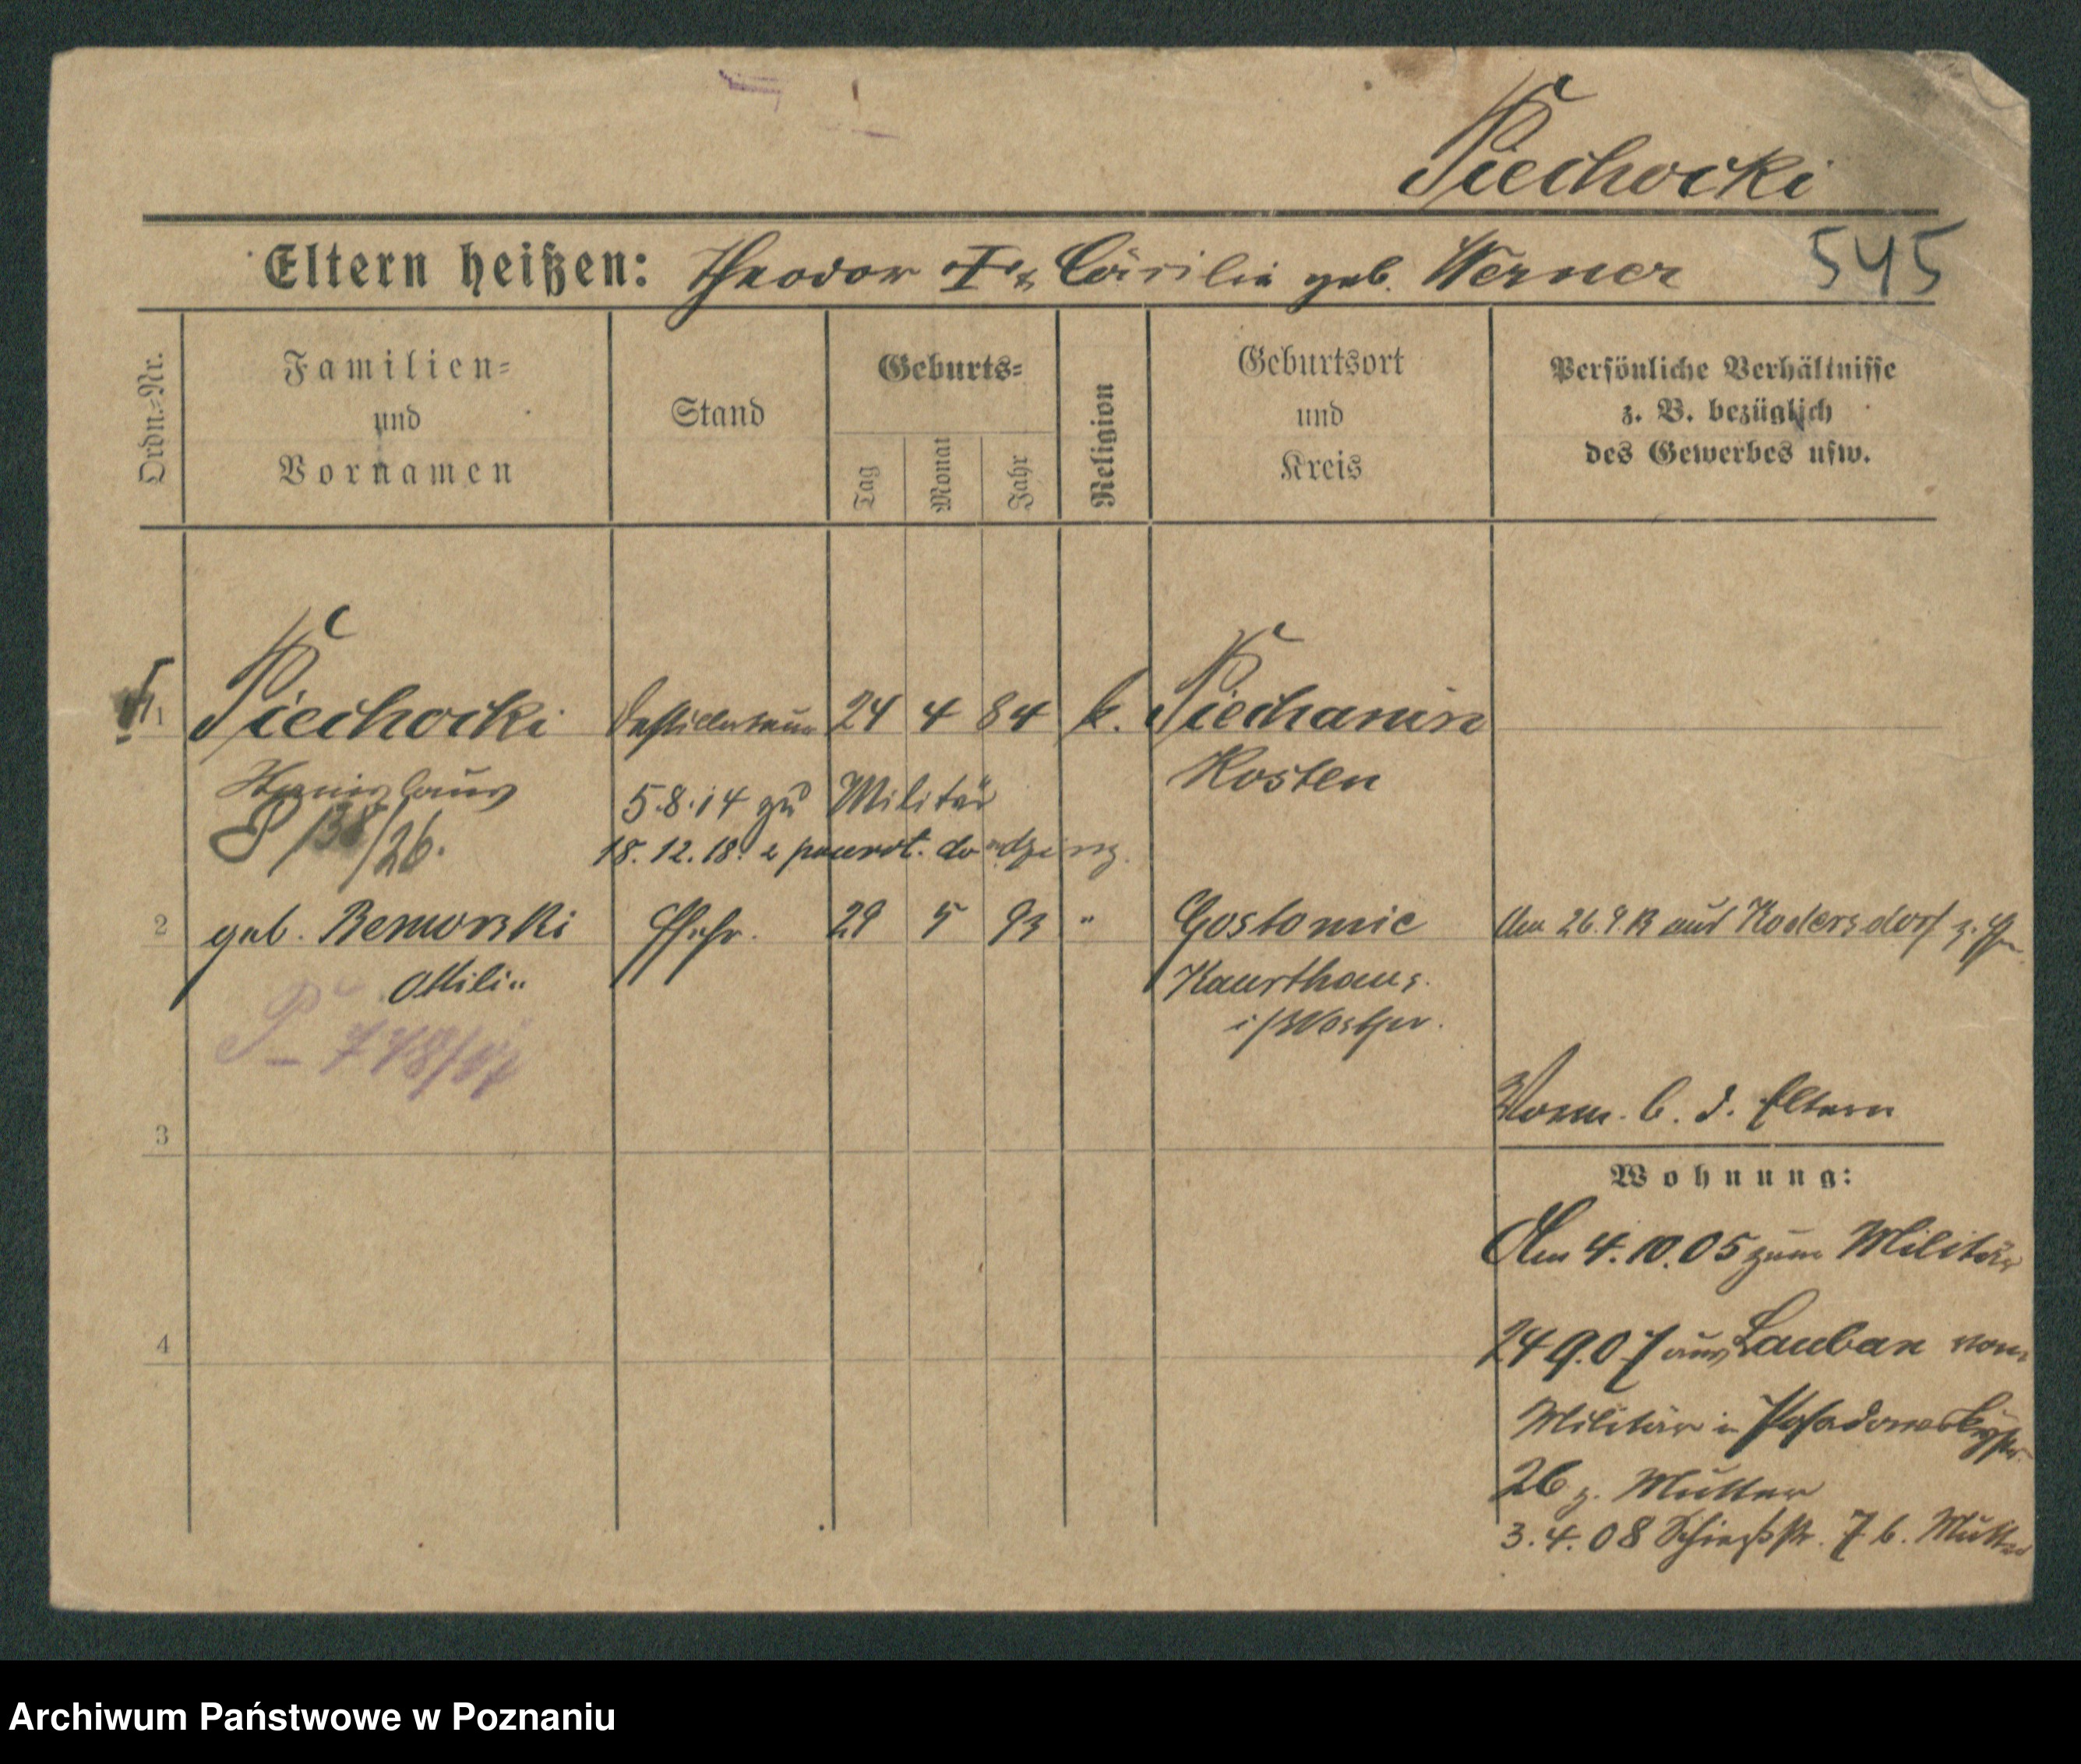 Piechocki
Eltern heißen: Theodor I & Cäcilie geb. Werner 545
Ordn.-Nr.
Familien- und Vornamen
Stand
Geburts-
Tag
Monat
Jahr
Religion
Geburtsort und Kreis
Persönliche Verhältnisse
z. B. bezüglich
des Gewerbes usw.
1 Piechocki 24 4 84 k. Piechanin
Kosten
5.8.14 zu Militär
P 138/26.
18.12.18. z powrot. do
2 geb. Bemowski Ehefr. 29 5 93 " Gostomie Am 26.9.13 aus Kodersdorf z.
Ottilie
Karthaus
i/Westpr.
P- 748/
Vorm. b. d. Eltern
3
Wohnung:
Am 4.10.05 zum Militär
4
24 9.07 aus Lauban vom
Militär in Posadowskystr.
26 z. Mutter
3.4.08 Schießstr. 7 b. Mutter
Archiwum Państwowe w Poznaniu